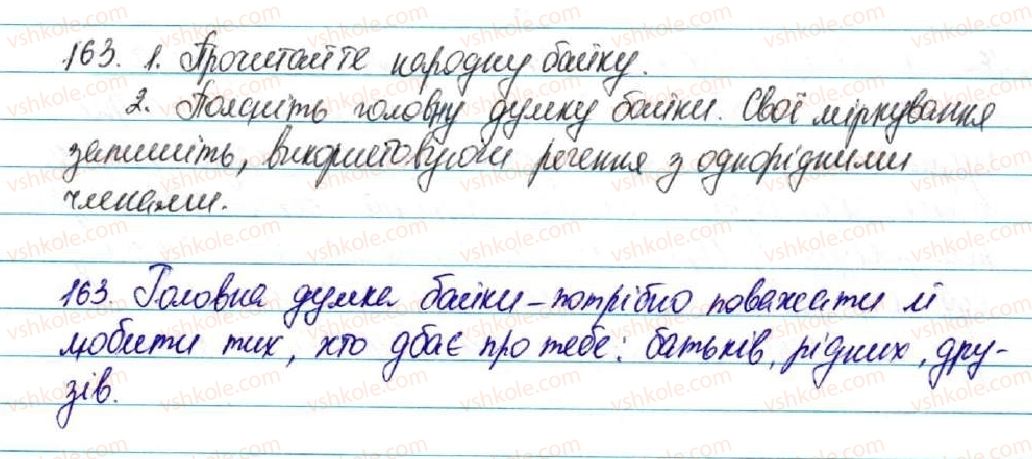 163. 1. Прочитайте народну байку.
2. Поясніть головну думку байки. Свої міркування
запишіть, використовуючи речення з однорідними
членами.
163. Головна думка байки – потрібно поважати й
любити тих, хто дбає про тебе: батьків, рідних, дру-
зів.